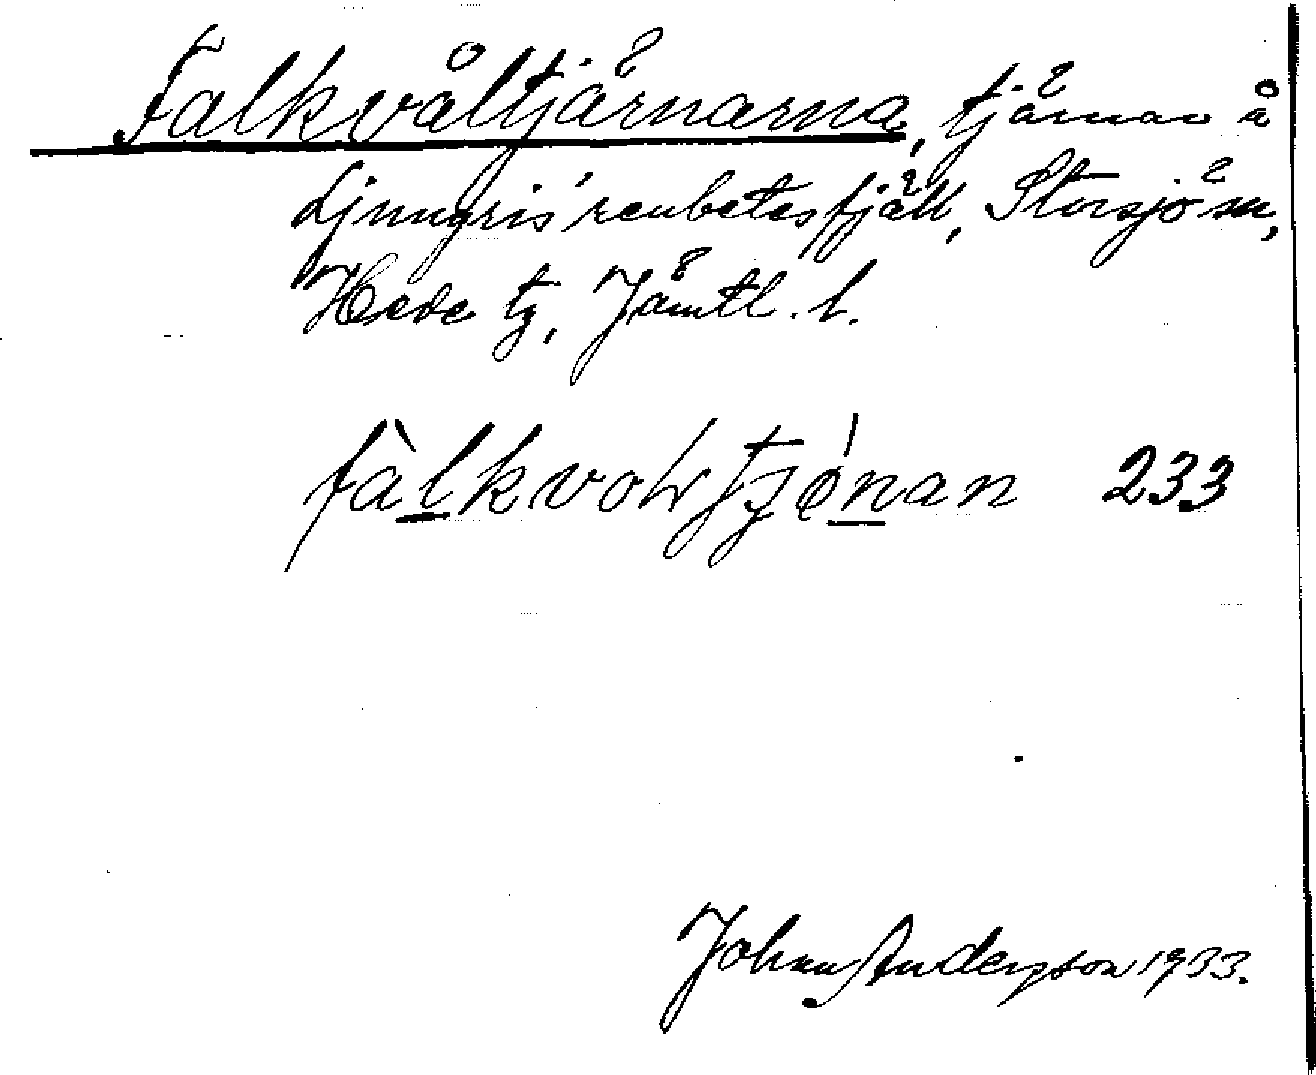 Falkvåltjärnarna, tjärnar å
Ljungris' renbetesfjäll, Storsjö sn,
Hede tg, Jämtl. l.
fàlkvołtjǿnan 233
Johan Anderson 1933.